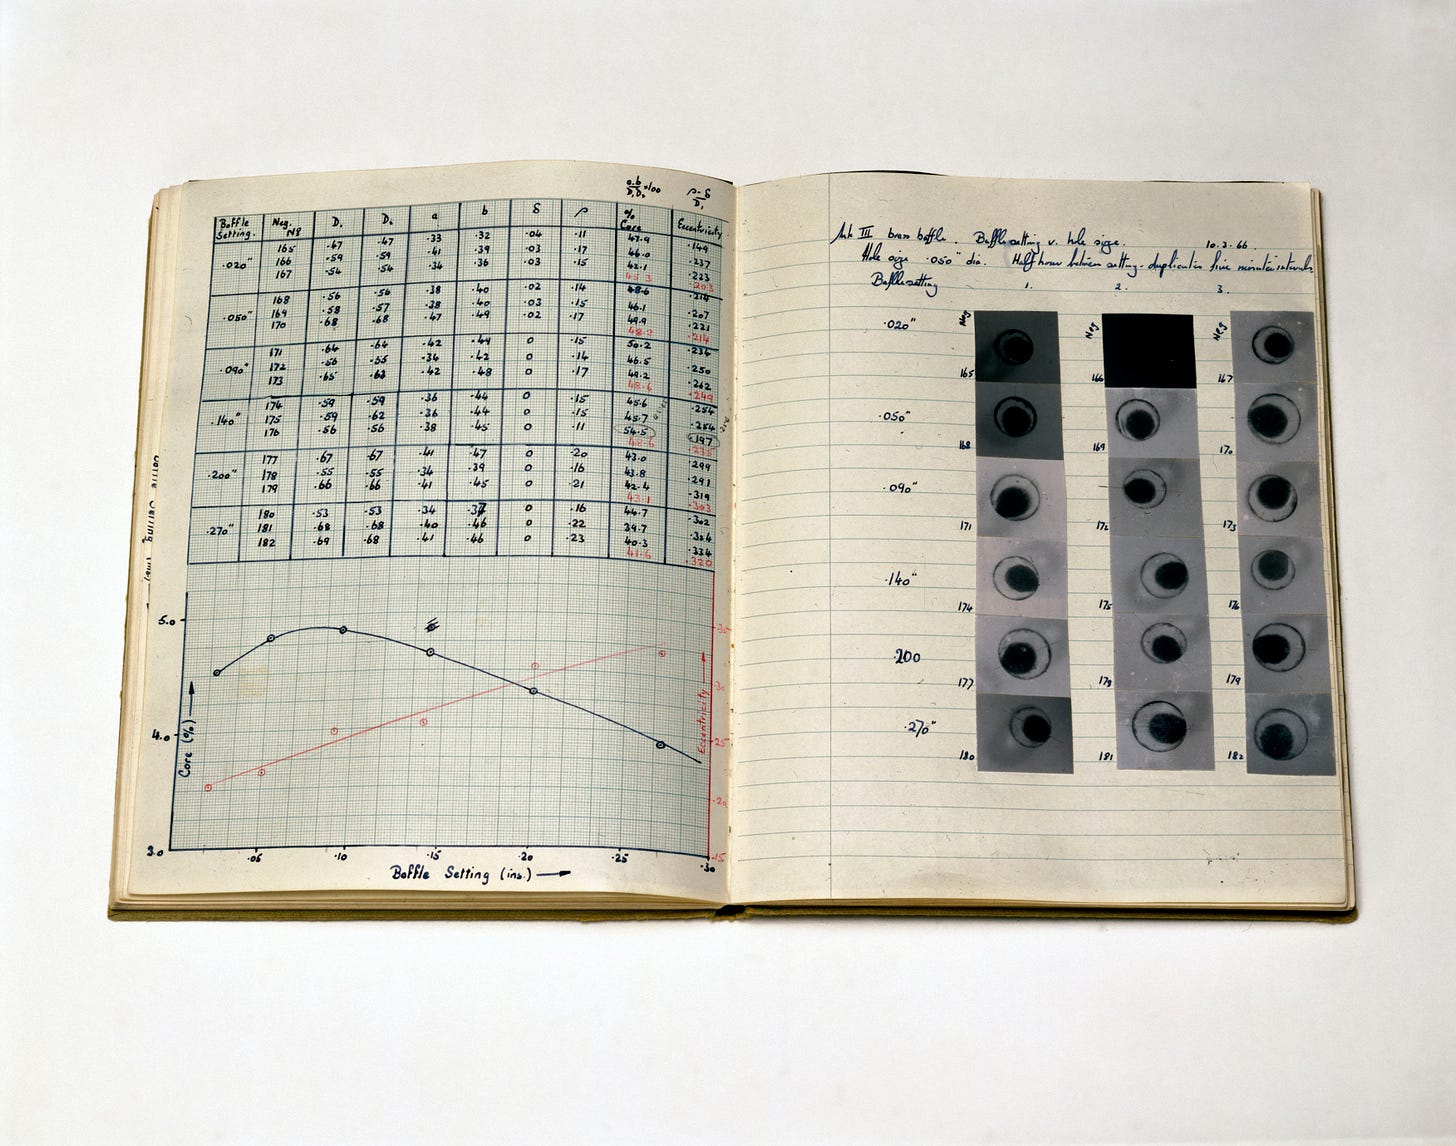 a.b/D₁D₂ ×100 ρ-δ/D₁
Baffle Setting. Neg. Nº D₁ D₂ a b δ ρ % Core Eccentricity
165 .67 .47 .33 .32 .04 .11 47.9 .149
.020" 166 .59 .59 .41 .39 .03 .17 46.0 .237
167 .54 .54 .34 .36 .03 .15 42.1 .223
45.3 .203
168 .56 .56 .38 .40 .02 .14 48.6 .214
.050" 169 .58 .57 .38 .40 .03 .15 46.1 .207
170 .68 .68 .47 .49 .02 .17 49.9 .221
48.2 .214
171 .64 .64 .42 .49 0 .15 50.2 .234
.090" 172 .56 .55 .34 .42 0 .14 46.5 .250
173 .65 .63 .42 .48 0 .17 49.2 .262
48.6 .249
174 .59 .59 .36 .44 0 .15 45.6 .254
.140" 175 .59 .62 .36 .44 0 .15 45.7 .254
176 .56 .56 .38 .45 0 .11 54.5 .197
48.6 .235
177 .67 .67 .41 .47 0 .20 43.0 .299
.200" 178 .55 .55 .34 .39 0 .16 43.8 .291
179 .66 .66 .41 .45 0 .21 42.4 .319
43.1 .303
180 .53 .53 .34 .37 0 .16 44.7 .302
.270" 181 .68 .68 .40 .46 0 .22 39.7 .324
182 .69 .68 .41 .46 0 .23 40.3 .334
41.6 .320
5.0
4.0
3.0
Core (%)
.05 .10 .15 .20 .25 .30
Baffle Setting (ins.)
.35
.30
.25
.20
.15
Eccentricity
Mk III brass baffle. Baffle setting v. hole size. 10.3.66.
Hole size .050" dia. Half hour between setting - duplicates five minute intervals
Baffle setting 1. 2. 3.
Neg Neg Neg
.020" 165 166 167
.050" 168 169 170
.090" 171 172 173
.140" 174 175 176
.200 177 178 179
.270" 180 181 182